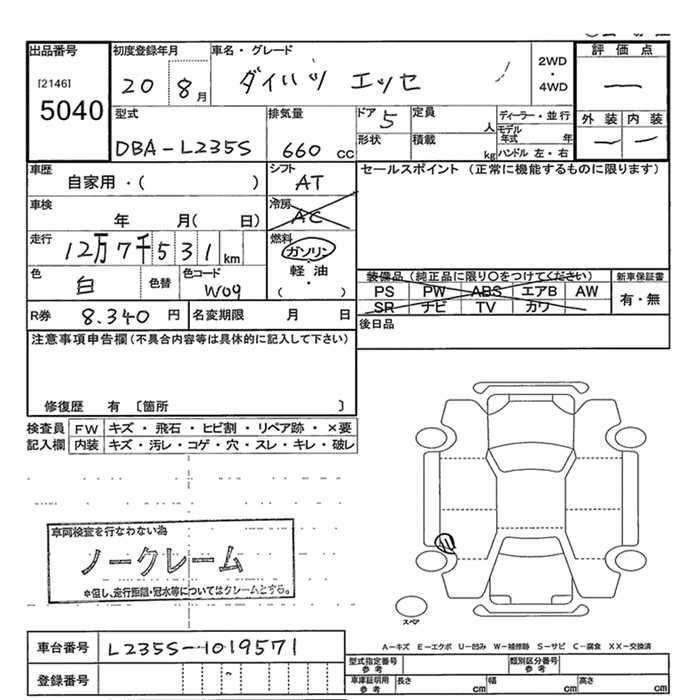 出品番号 初度登録年月 車名・グレード 2WD・4WD 評価点
[2146] 5040 20 8月 ダイハツ エッセ —
型式 排気量 ドア 5 定員 人 ディーラー・並行 外装 内装
DBA-L235S 660 CC 形状 積載 kg モデル年式 年 ハンドル 左・右 — —
車歴 シフト セールスポイント (正常に機能するものに限ります)
自家用・( ) AT
車検 冷房
年 月( 日) AC
走行 燃料
12万7千531 km ガソリン・軽油・( )
色 色替 色コード 装備品 (純正品に限り○をつけてください) 新車保証書
白 W09 PS PW ABS エアB AW 有・無
SR ナビ TV カワ
R券 8.340 円 名変期限 月 日 後日品
注意事項申告欄(不具合内容等は具体的に記入して下さい)
修復歴 有 〔箇所 〕
検査員 FW キズ・飛石・ヒビ割・リペア跡・×要
記入欄 内装 キズ・汚レ・コゲ・穴・スレ・キレ・破レ
車両検査を行なわない為
ノークレーム
※但し、走行距離・冠水等についてはクレームとする。
スペア
車台番号 L235S-1019571
A−キズ E−エクボ U−凹み W−補修跡 S−サビ C−腐食 XX−交換済
登録番号
型式指定番号 参考 類別区分番号 参考
車庫証明用 参考 長さ cm 幅 cm 高さ cm